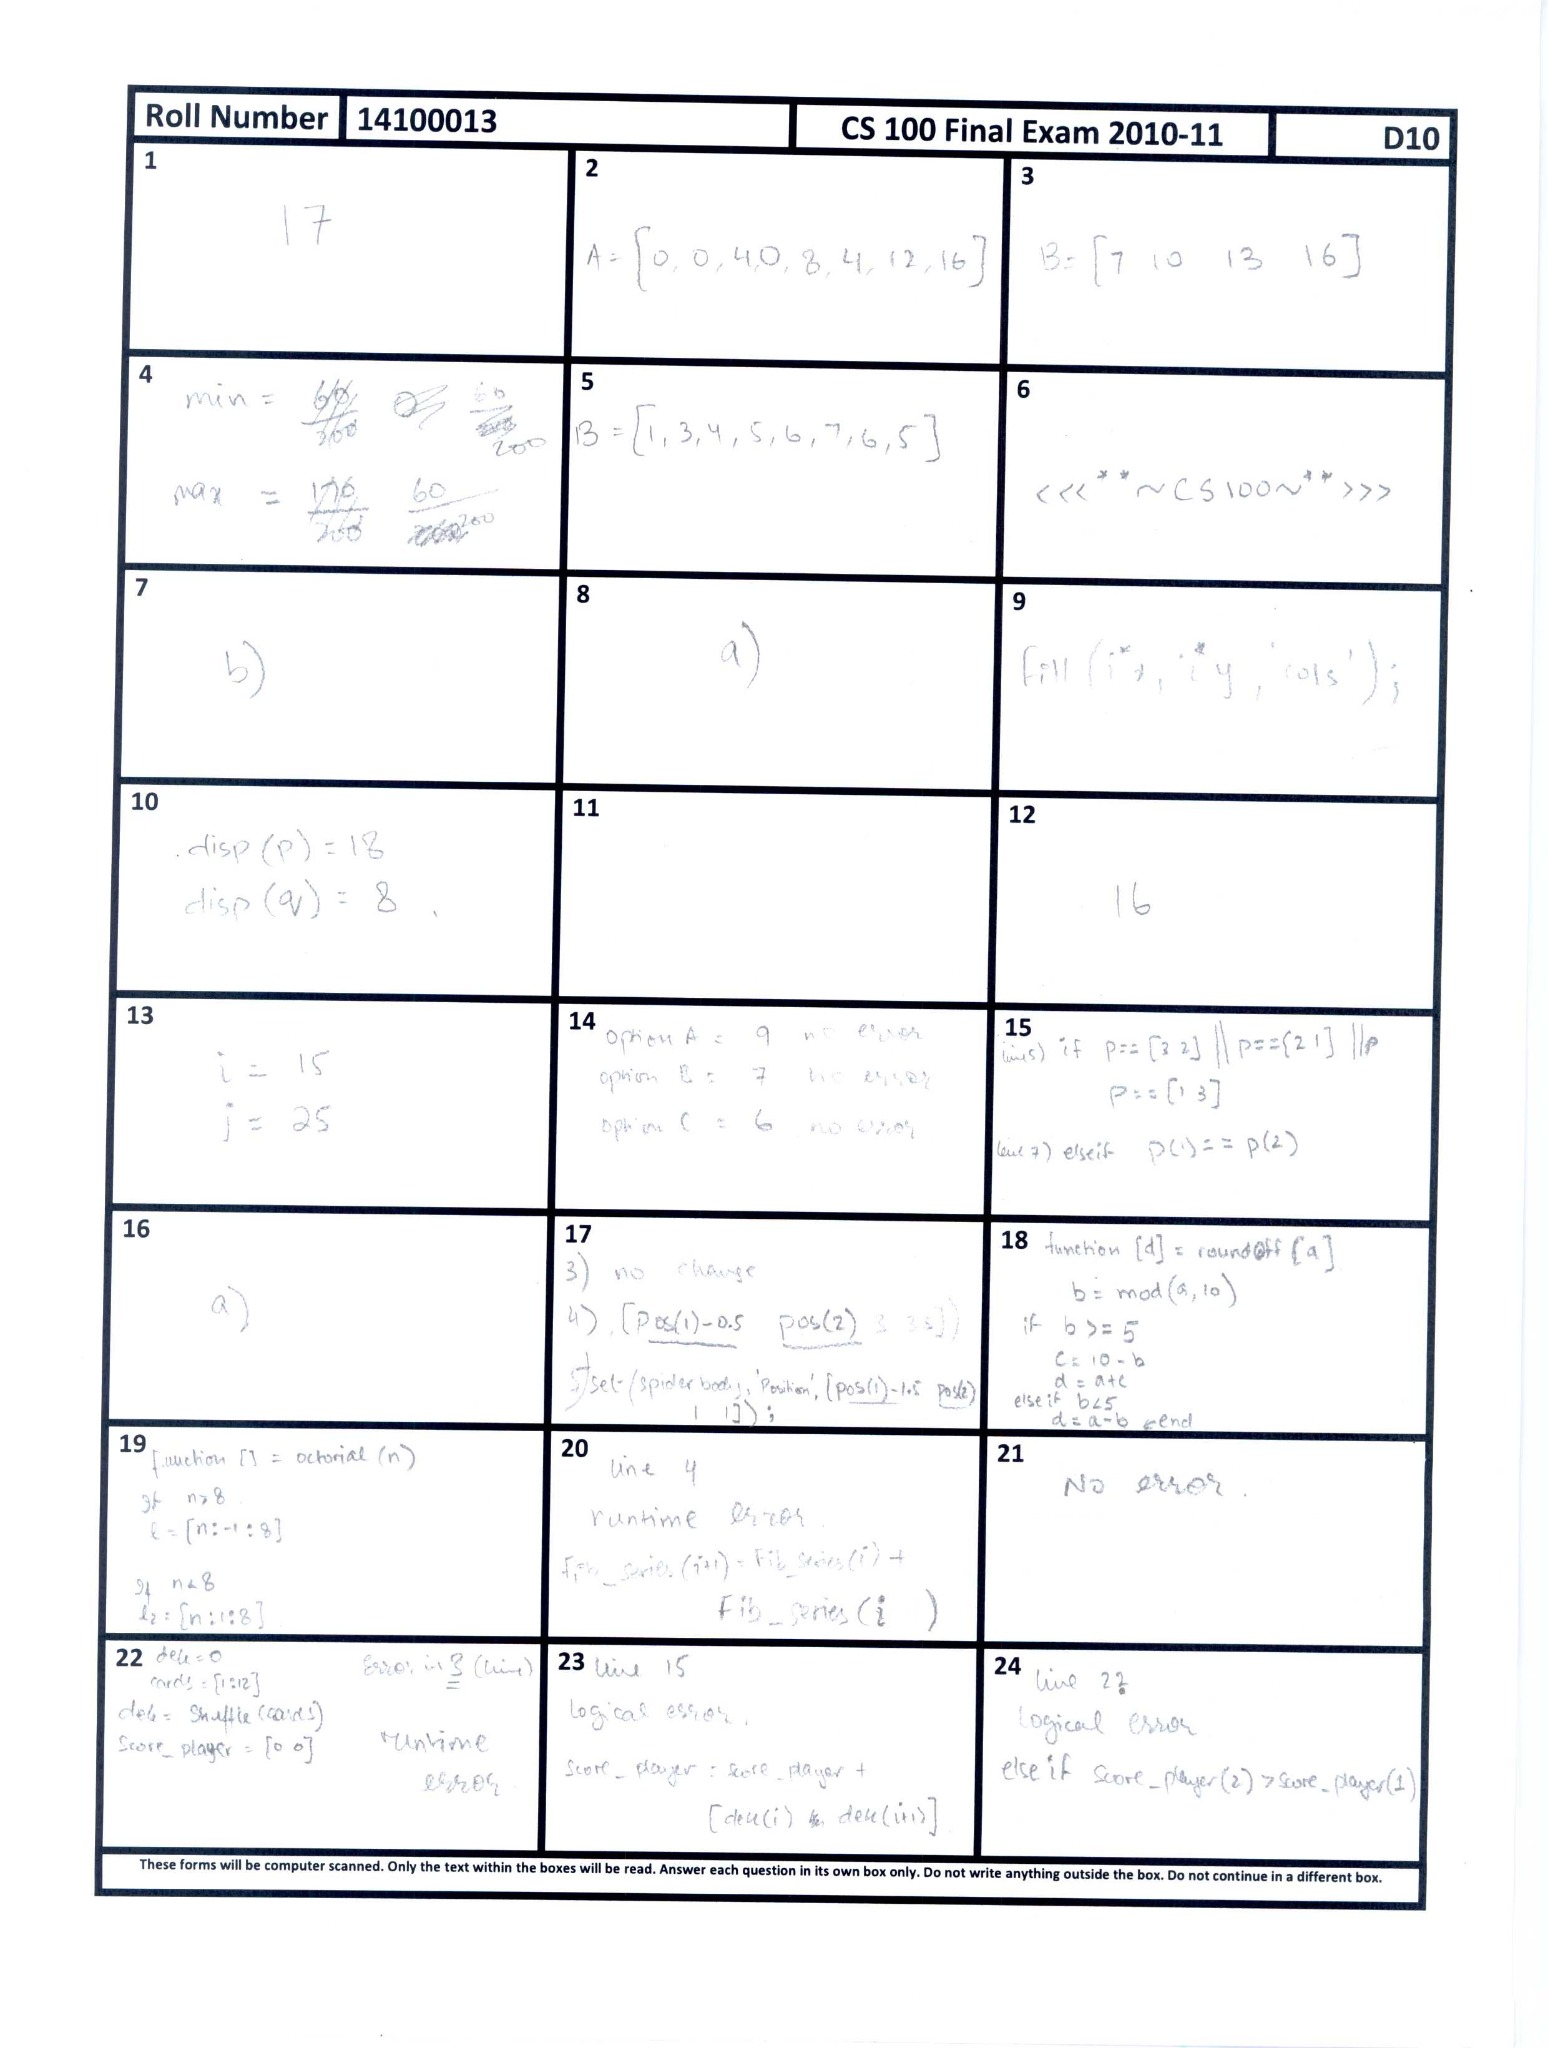 Roll Number 14100013 CS 100 Final Exam 2010-11 D10
1
17
2
A = [0, 0, 4, 0, 8, 4, 12, 16]
3
B = [7 10 13 16]
4
min = 60
200
max = 60
200
5
B = [1, 3, 4, 5, 6, 7, 6, 5]
6
<<<**~CS100~**>>>
7
b)
8
a)
9
fill (i*x, i*y, 'cols');
10
disp (p) = 18
disp (q) = 8
11
12
16
13
i = 15
j = 25
14
option A = 9 no error
option B = 7 no error
option C = 6 no error
15
line 5) if p== [3 2] || p==[2 1] || p
p== [1 3]
line 7) elseif p(1) == p(2)
16
a)
17
3) no change
4) [pos(1)-0.5 pos(2) 3 3.5])
5) set (spider body, 'Position', [pos(1)-1.5 pos(2)
1 1]);
18
function [d] = roundoff [a]
b = mod(a, 10)
if b >= 5
c = 10 - b
d = a+c
elseif b<5
d = a-b end
19
function [] = octorial (n)
if n>8
l = [n:-1:8]
if n<8
l2 = [n:1:8]
20
line 4
runtime error
fib_series (i+1) = Fib_series(i) +
Fib_series (i )
21
No error.
22
dek = 0
cards = [1:12]
dek = Shuffle (cards)
Score_player = [0 0]
Error in 3 (line)
runtime
error
23
line 15
logical error.
score_player = score_player +
[dek(i) dek(i+1)]
24
line 22
logical error
else if score_player(2) > score_player(1)
These forms will be computer scanned. Only the text within the boxes will be read. Answer each question in its own box only. Do not write anything outside the box. Do not continue in a different box.